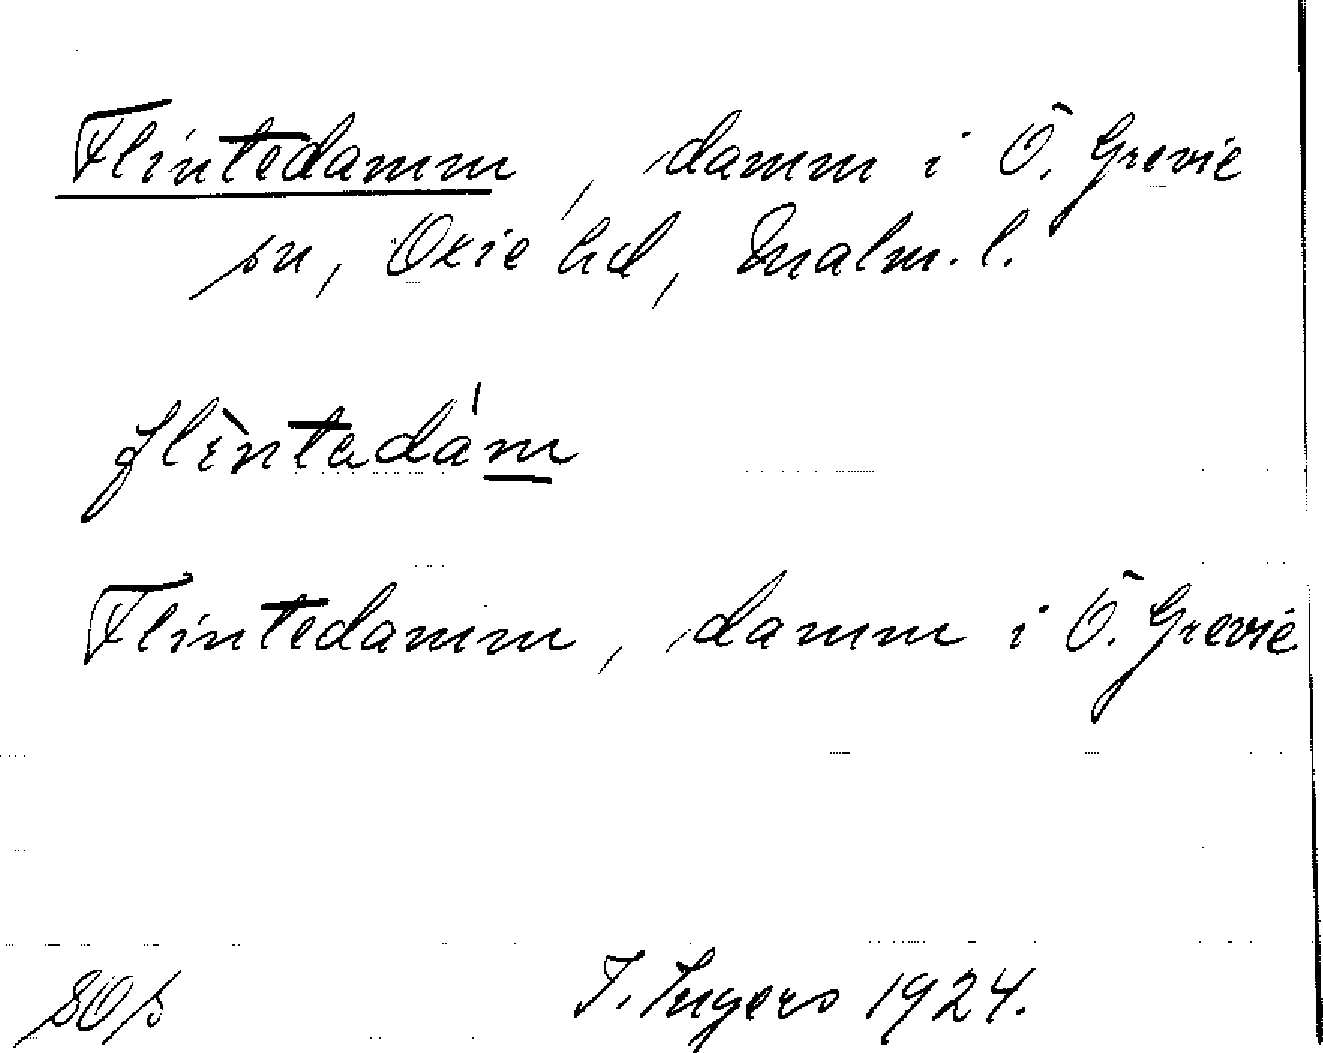 Flintedamm, damm i Ö. Grevie
sn, Oxie hd, Malm. l.
flìntadám
Flintedamm, damm i Ö. Grevie
SOſs I. Ingers 1924.